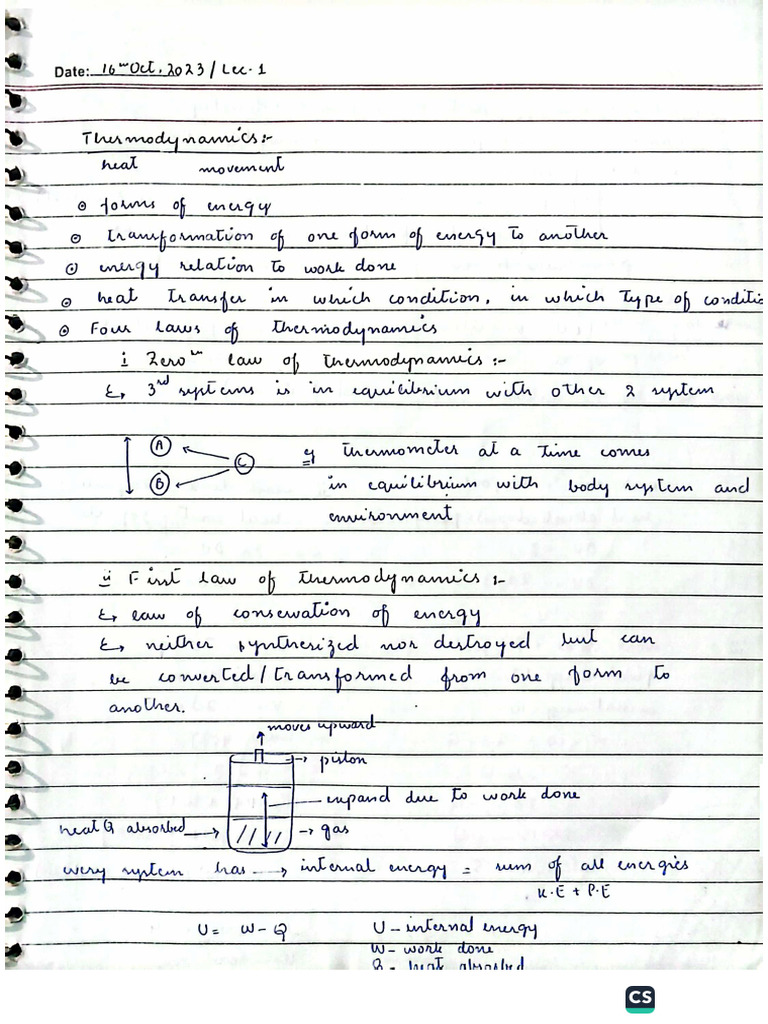 Date: 16th Oct, 2023 / Lec. 1
Thermodynamics:-
heat movement
⊙ forms of energy
⊙ transformation of one form of energy to another
⊙ energy relation to work done
⊙ heat transfer in which condition, in which type of conditio
⊙ Four laws of thermodynamics
i Zeroth law of thermodynamics :-
↳ 3rd systems is in equilibrium with other 2 system
A
B
C
eg thermometer at a time comes
in equilibrium with body system and
environment
ii First law of thermodynamics :-
↳ law of conservation of energy
↳ neither synthesized nor destroyed but can
be converted/transformed from one form to
another.
moves upward
→ piston
expand due to work done
heat Q absorbed → → gas
every system has → internal energy = sum of all energies
K.E + P.E
U = W - Q U - internal energy
W - work done
Q - heat absorbed
CS